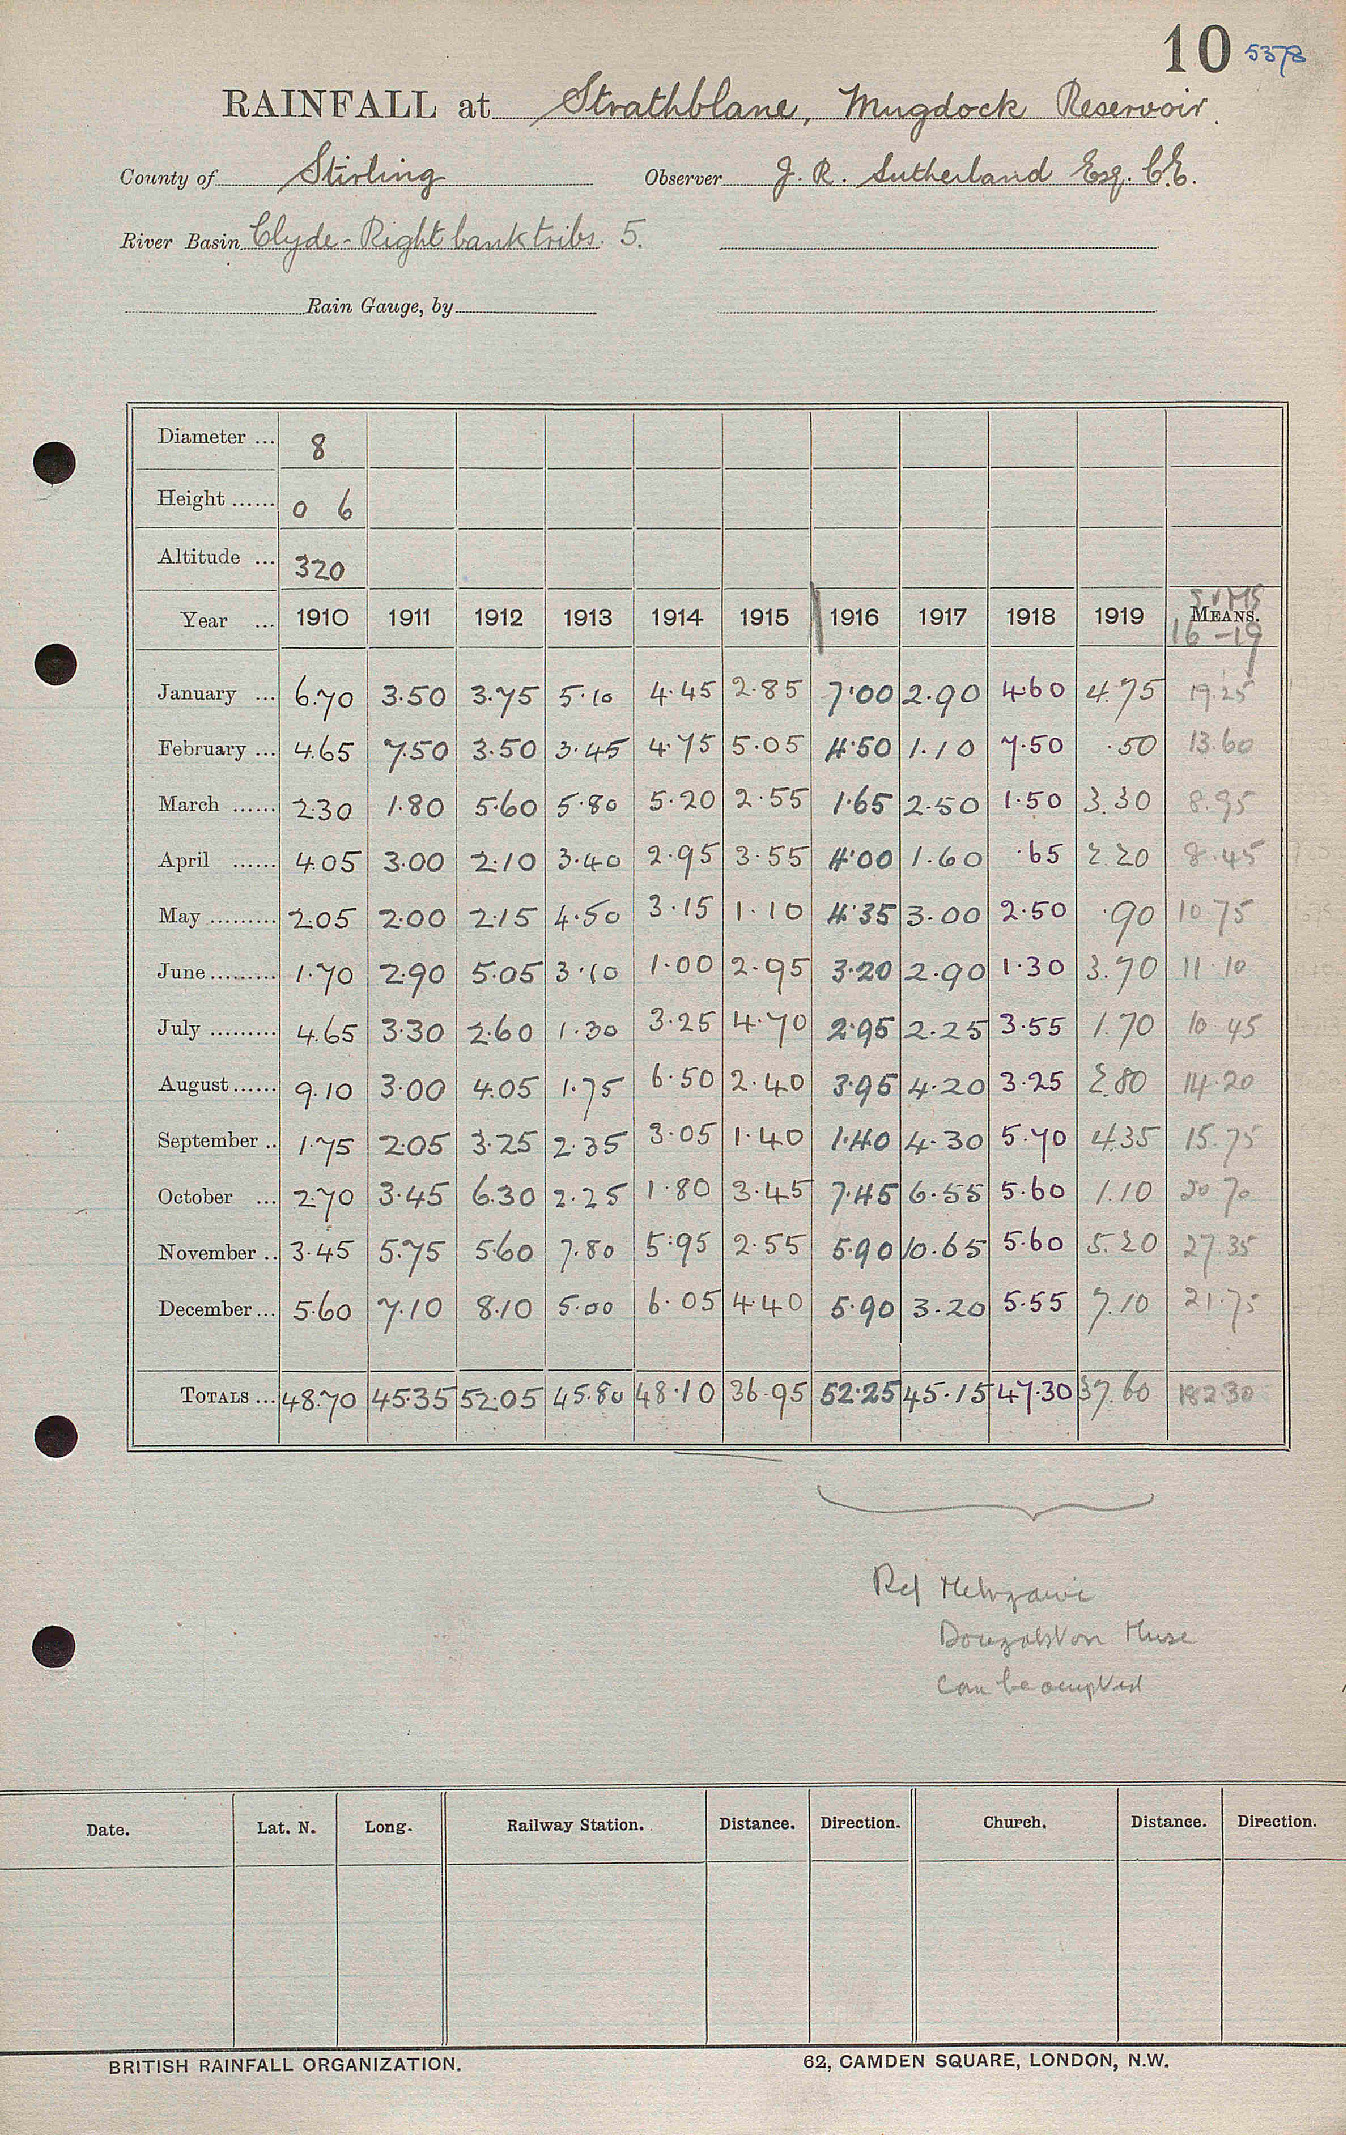 10 5378
RAINFALL at Strathblane, Mugdock Reservoir.
County of Stirling Observer J. R. Sutherland Esq. C.E.
River Basin Clyde - Right bank tribs. 5.
Rain Gauge, by
Diameter ... 8
Height ...... 0 6
Altitude ... 320
SUMS
Year ... 1910 1911 1912 1913 1914 1915 1916 1917 1918 1919 MEANS.
16-19
January ... 6.70 3.50 3.75 5.10 4.45 2.85 7.00 2.90 4.60 4.75 19.25
February ... 4.65 7.50 3.50 3.45 4.75 5.05 4.50 1.10 7.50 .50 13.60
March ...... 2.30 1.80 5.60 5.80 5.20 2.55 1.65 2.50 1.50 3.30 8.95
April ...... 4.05 3.00 2.10 3.40 2.95 3.55 4.00 1.60 .65 2.20 8.45
May ......... 2.05 2.00 2.15 4.50 3.15 1.10 4.35 3.00 2.50 .90 10.75
June ......... 1.70 2.90 5.05 3.10 1.00 2.95 3.20 2.90 1.30 3.70 11.10
July ......... 4.65 3.30 2.60 1.30 3.25 4.70 2.95 2.25 3.55 1.70 10.45
August ...... 9.10 3.00 4.05 1.75 6.50 2.40 3.95 4.20 3.25 2.80 14.20
September .. 1.75 2.05 3.25 2.35 3.05 1.40 1.40 4.30 5.70 4.35 15.75
October ... 2.70 3.45 6.30 2.25 1.80 3.45 7.45 6.55 5.60 1.10 20.70
November .. 3.45 5.75 5.60 7.80 5.95 2.55 5.90 10.65 5.60 5.20 27.35
December ... 5.60 7.10 8.10 5.00 6.05 4.40 5.90 3.20 5.55 7.10 21.75
TOTALS ... 48.70 45.35 52.05 45.80 48.10 36.95 52.25 45.15 47.30 37.60 182.30
Ref
Dougalston House
Can be accepted
Date. Lat. N. Long. Railway Station. Distance. Direction. Church. Distance. Direction.
BRITISH RAINFALL ORGANIZATION. 62, CAMDEN SQUARE, LONDON, N.W.